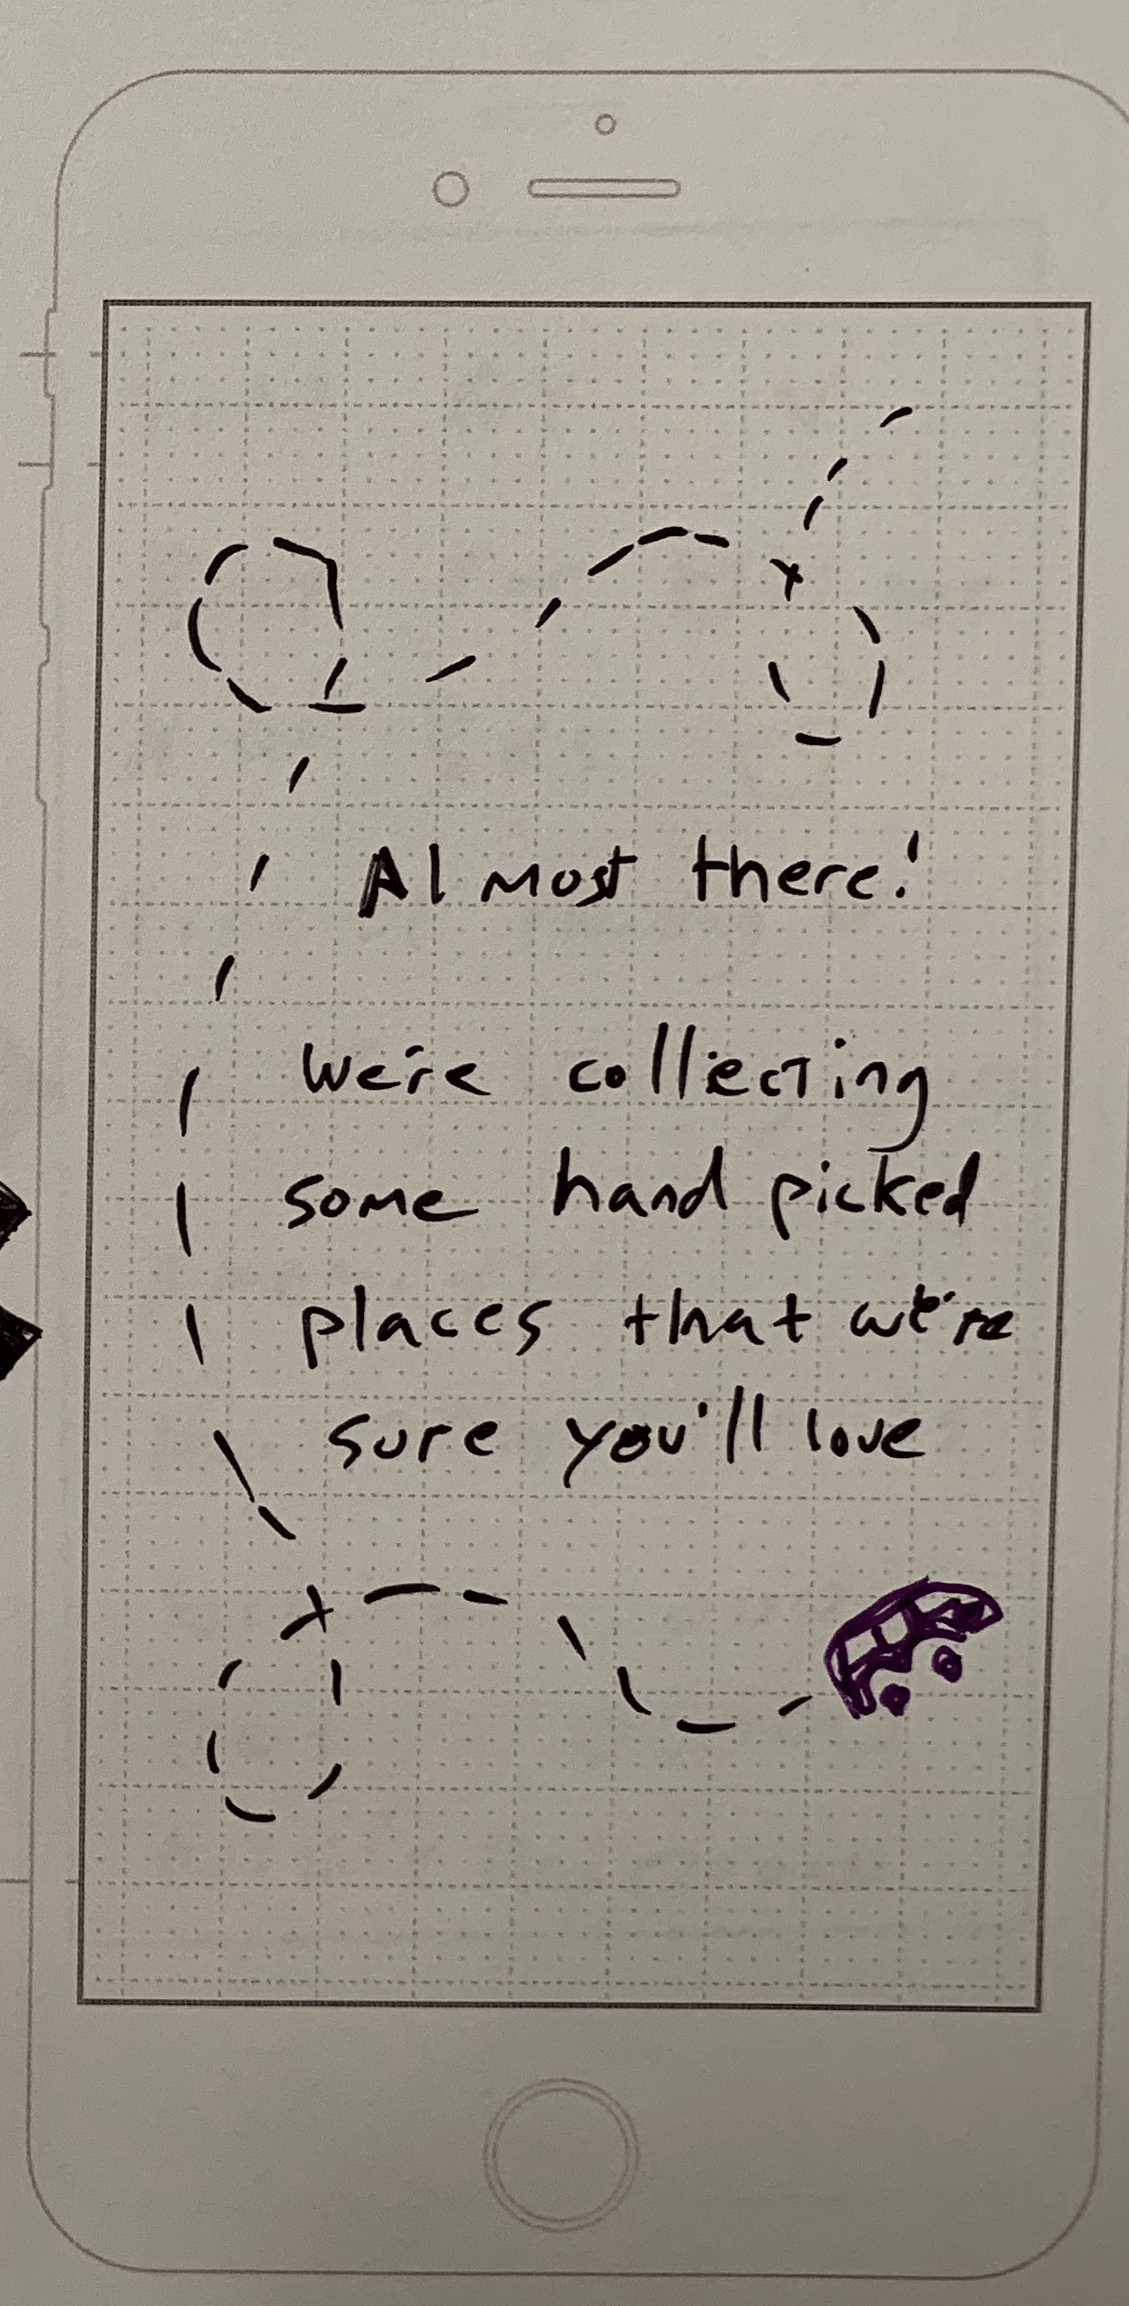 Almost there!
we're collecting
some hand picked
places that we're
sure you'll love